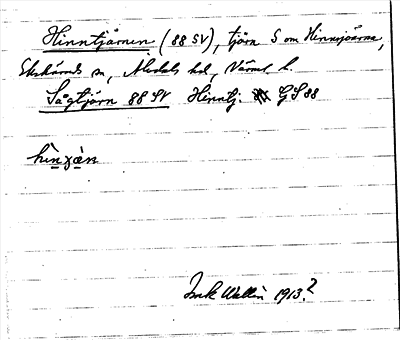 Hinntjärnen (88 SV), tjärn S om Hinnsjöarna,
Ekshärads sn, Älvdals hd, Värml. l.
Sågtjärn 88 SV Hinntj. GS 88
hìnʒæ̀n
Isak Wallin 1913?